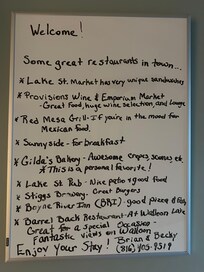 Welcome!
Some great restaurants in town...
* Lake St. Market has very unique sandwiches
* Provisions Wine & Emporium Market
- Great food, huge wine selection, and Lounge
* Red Mesa Grill - If you're in the mood for
Mexican food.
* Sunnyside - for breakfast
* Gilda's Bakery - Awesome crepes, scones, etc.
* This is a personal favorite!
* Lake St. Pub - Nice patio & good food
* Stiggs Brewery - Great burgers
* Boyne River Inn (BRI) - good pizza & fish
* Barrel Back Restaurant - At Walloon Lake
- Great for a special occasion -
Fantastic views on Walloon
Enjoy Your Stay! Brian & Becky